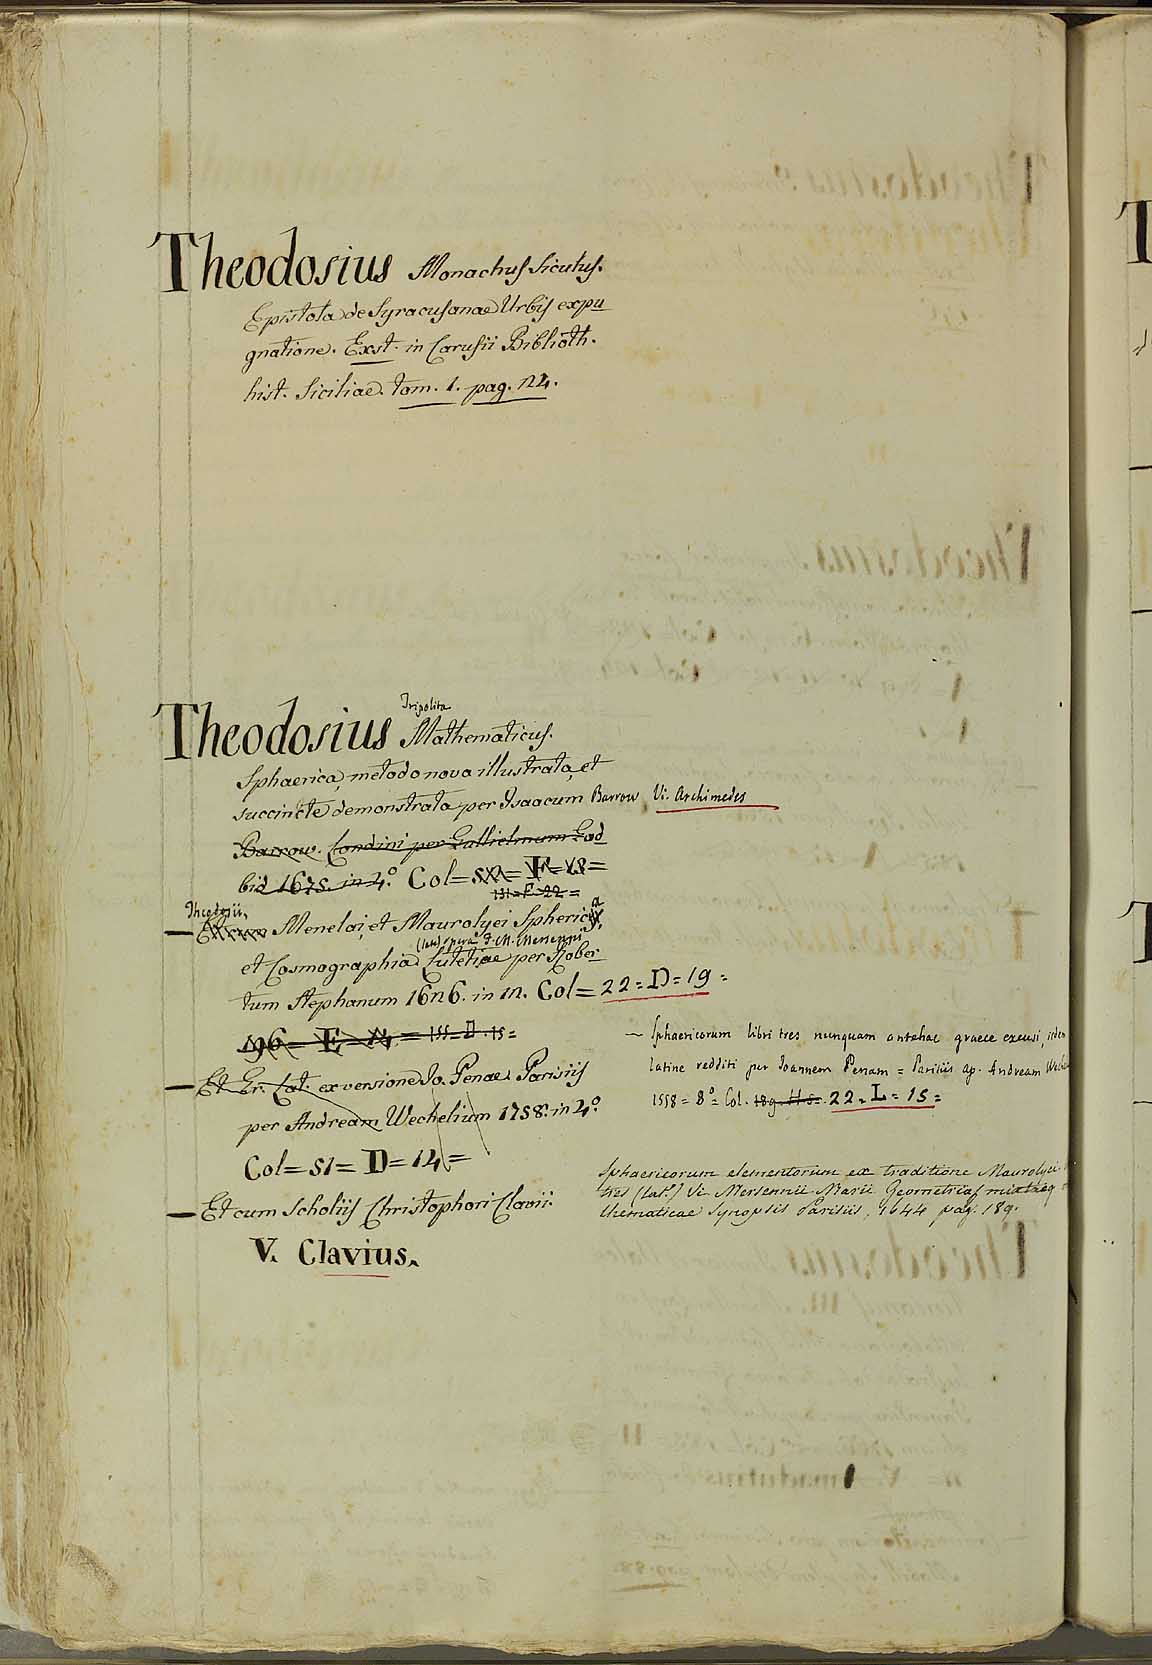 Theodosius Monachus Siculus.
Epistola de Syracusanae Urbis expu
gnatione. Exst. in Carusii Biblioth.
hist. Siciliae. tom. 1. pag. 24.
Tripolita
Theodosius Mathematicus.
Sphaerica, metodo nova illustrata, et
succincte demonstrata per Isaacum Barrow Vi. Archimedes
Barrow. Londini per Gullielmum God
bid 1675. in 4.° Col =
131 = F = 22 =
Theodosii,
— Menelai, et Maurolyci Spherica
(lat.) opera F. M. Mersenni
et Cosmographia Lutetiae per Rober
tum Stephanum 1626. in 12. Col = 22 = D = 19 =
196 = E = = 155 = D = 15 =
— Et Gr. Lat. ex versione Jo. Penae Parisiis
per Andream Wechelium 1758. in 4.°
Col = 51 = D = 14 =
— Et cum Scholiis Christophori Clavii.
V. Clavius.
— Sphaericorum libri tres nunquam antehac graece excusi, iidem
latine redditi per Joannem Penam = Parisiis ap. Andream Weche
1558 = 8° = Col. 189. H. 5. 22 = L = 15 =
Sphaericorum elementorum ex traditione Maurolyci
tres (lat.) Vi Mersennii Marii Geometriae mixtaeq
thematicae Synopsis Parisiis, 1644 pag. 189.